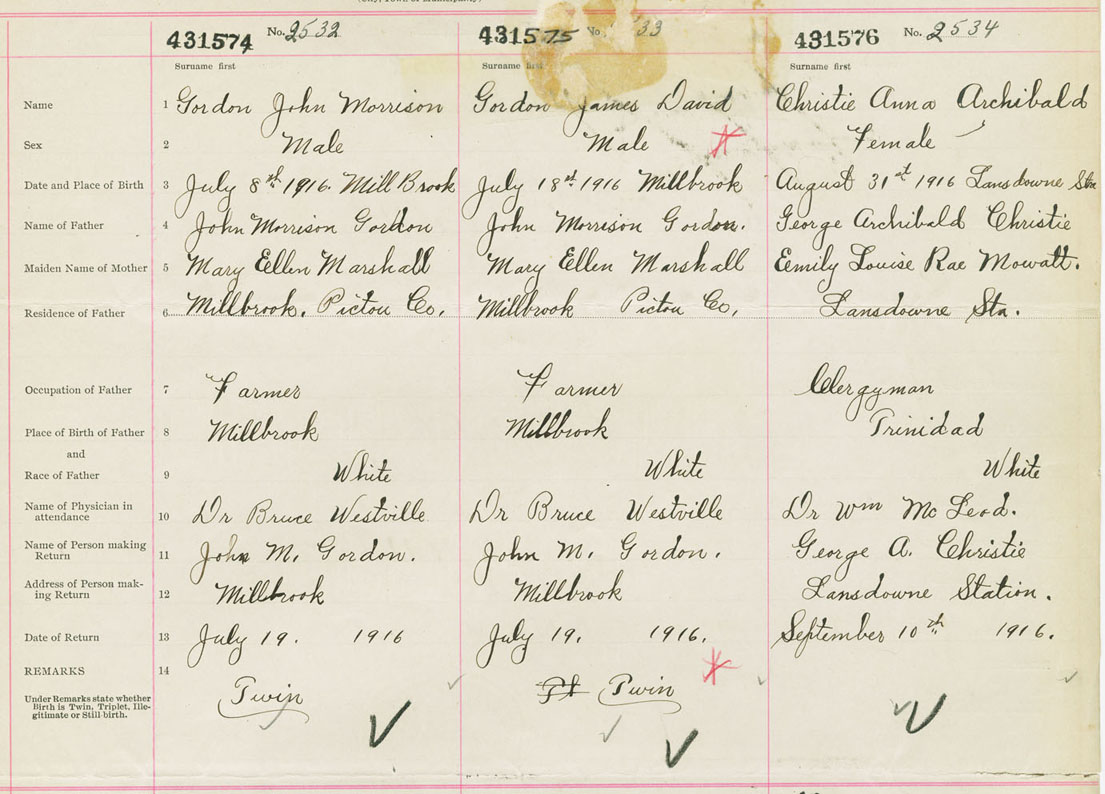 (City, Town or Municipality)
431574 No. 2532 431575 No 33 431576 No. 2534
Surname first Surname first Surname first
Name 1 Gordon John Morrison Gordon James David Christie Anna Archibald
Sex 2 Male Male Female
Date and Place of Birth 3 July 8st 1916. Mill Brook July 18st 1916 Millbrook August 31st 1916 Lansdowne Stn
Name of Father 4 John Morrison Gordon John Morrison Gordon. George Archibald Christie
Maiden Name of Mother 5 Mary Ellen Marshall Mary Ellen Marshall Eemily Louise Rae Mowatt.
Residence of Father 6 Millbrook. Pictou Co, Millbrook Pictou Co, Lansdowne Stn.
Occupation of Father 7 Farmer Farmer Clergyman
Place of Birth of Father 8 Millbrook Millbrook Trinidad
and
Race of Father 9 White White White
Name of Physician in
attendance 10 Dr Bruce Westville Dr Bruce Westville Dr Wm McLeod.
Name of Person making
Return 11 John M. Gordon. John M. Gordon. George A. Christie
Address of Person mak-
ing Return 12 Millbrook Millbrook Lansdowne Station.
Date of Return 13 July 19. 1916 July 19. 1916. September 10th 1916.
REMARKS 14
Under Remarks state whether
Birth is Twin, Triplet, Ille-
gitimate or Still-birth.
Twin Twin